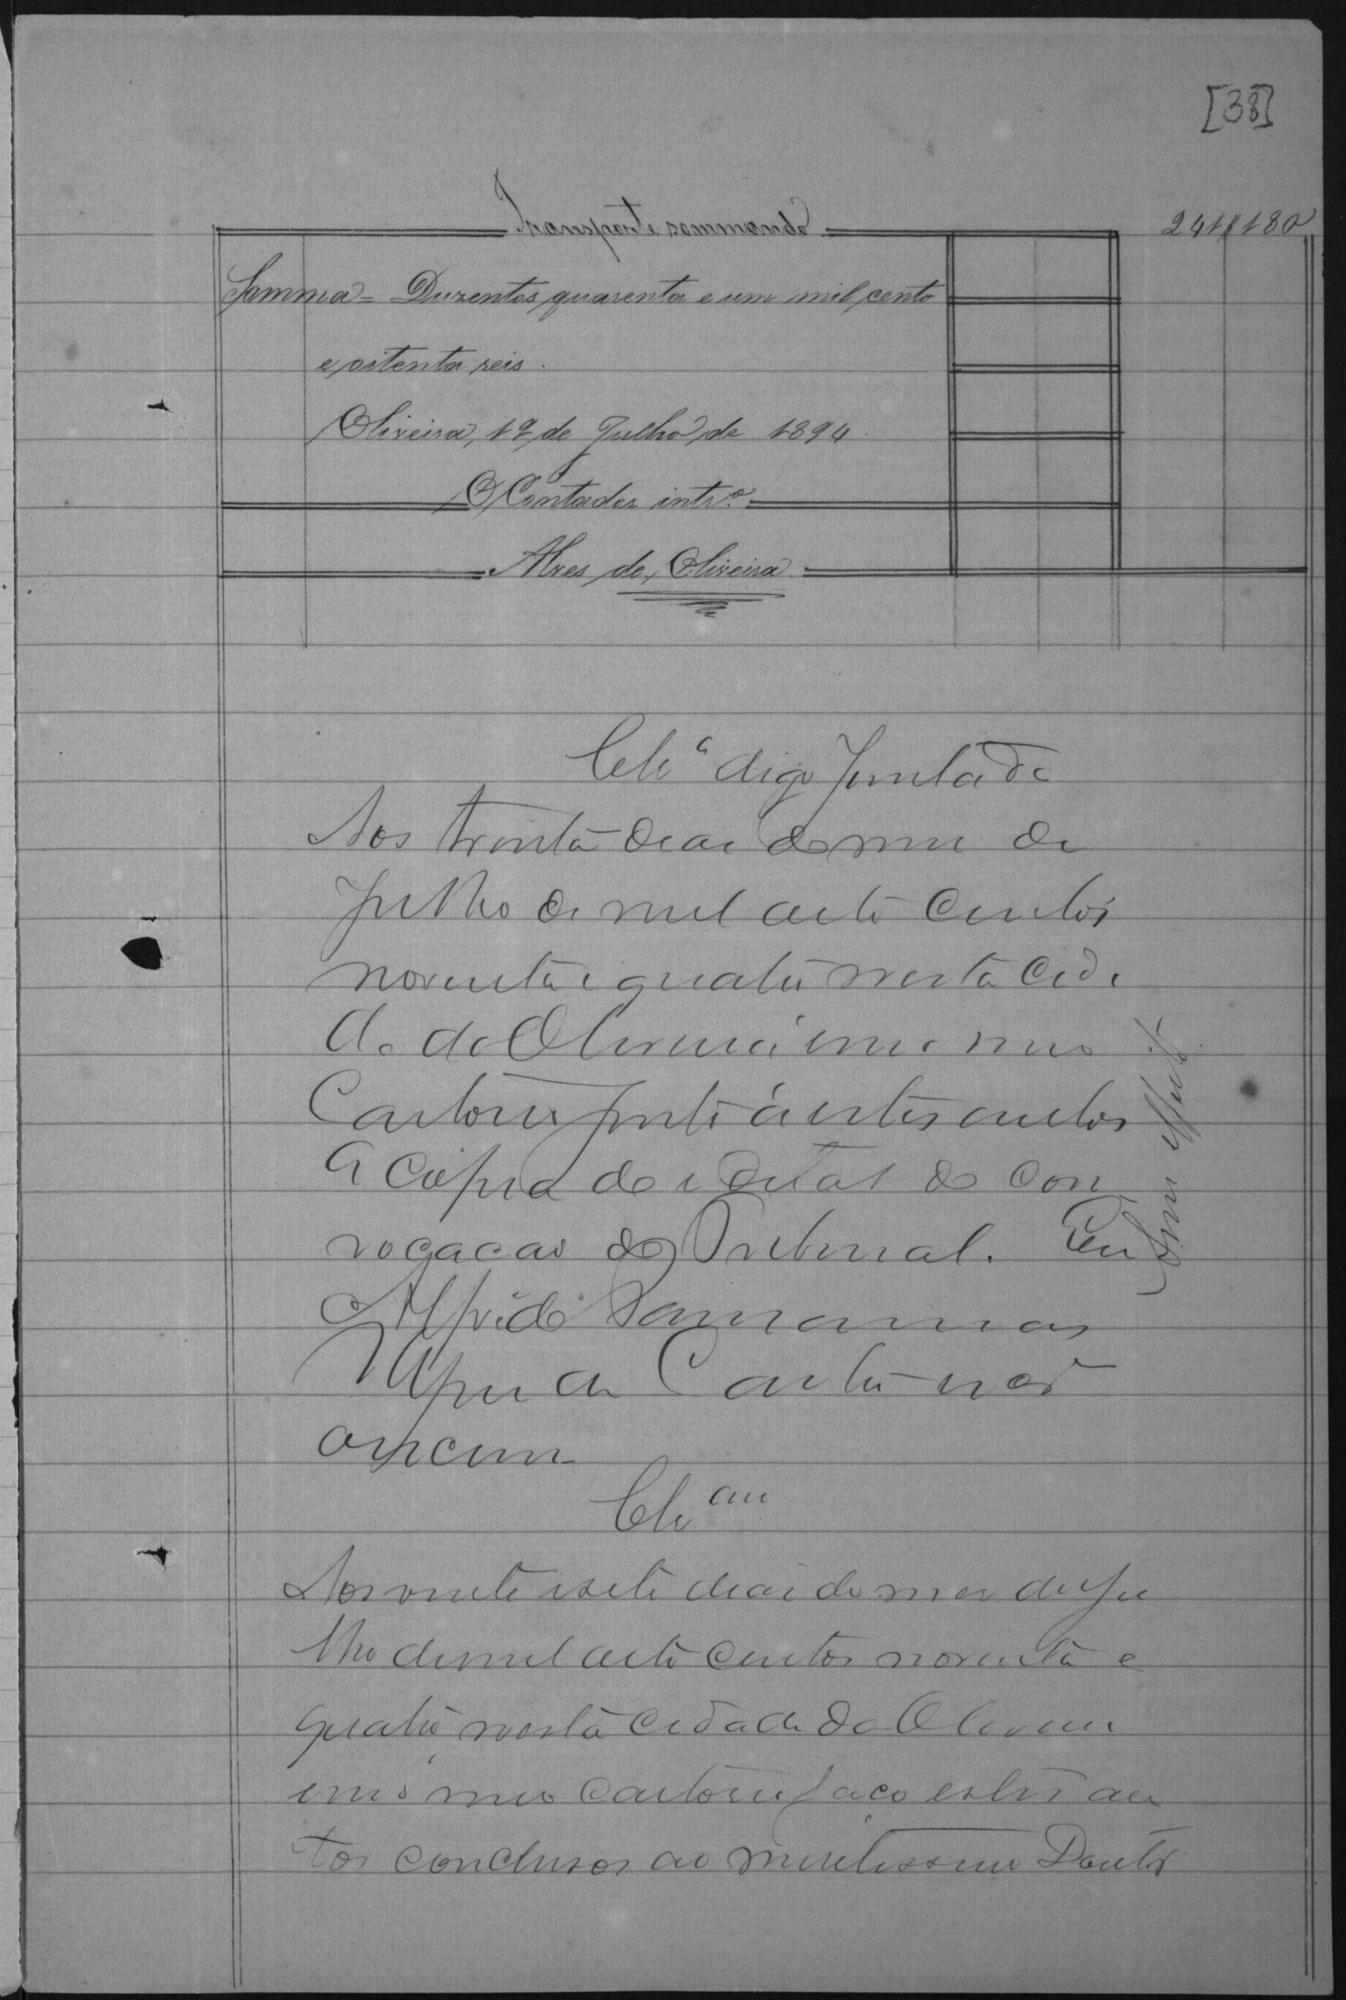 [38]
Transporte sommando 241$180
Somma = Duzentos quarenta e um mil cento
e oitenta reis.
Oliveira, 12 de Julho de 1894.
O Contador intr.º
Alves de Oliveira
digo Juntada
Aos trinta dias do mes de
Julho de mil oito centos
noventa e quatro nesta cida
de da Oliveira em meu
Cartorio junto á estes autos
a copia do edital de con
vocacao do Tribunal. Eu
Alfredo
de Castro escri
Sem effeito
Cls.
Aos vinte e sete dias do mes de Ju
lho de mil oito centos noventa e
quatro nesta cidade da Oliveira
em meu cartorio faço estes au
tos conclusos ao meritissimo Doutor